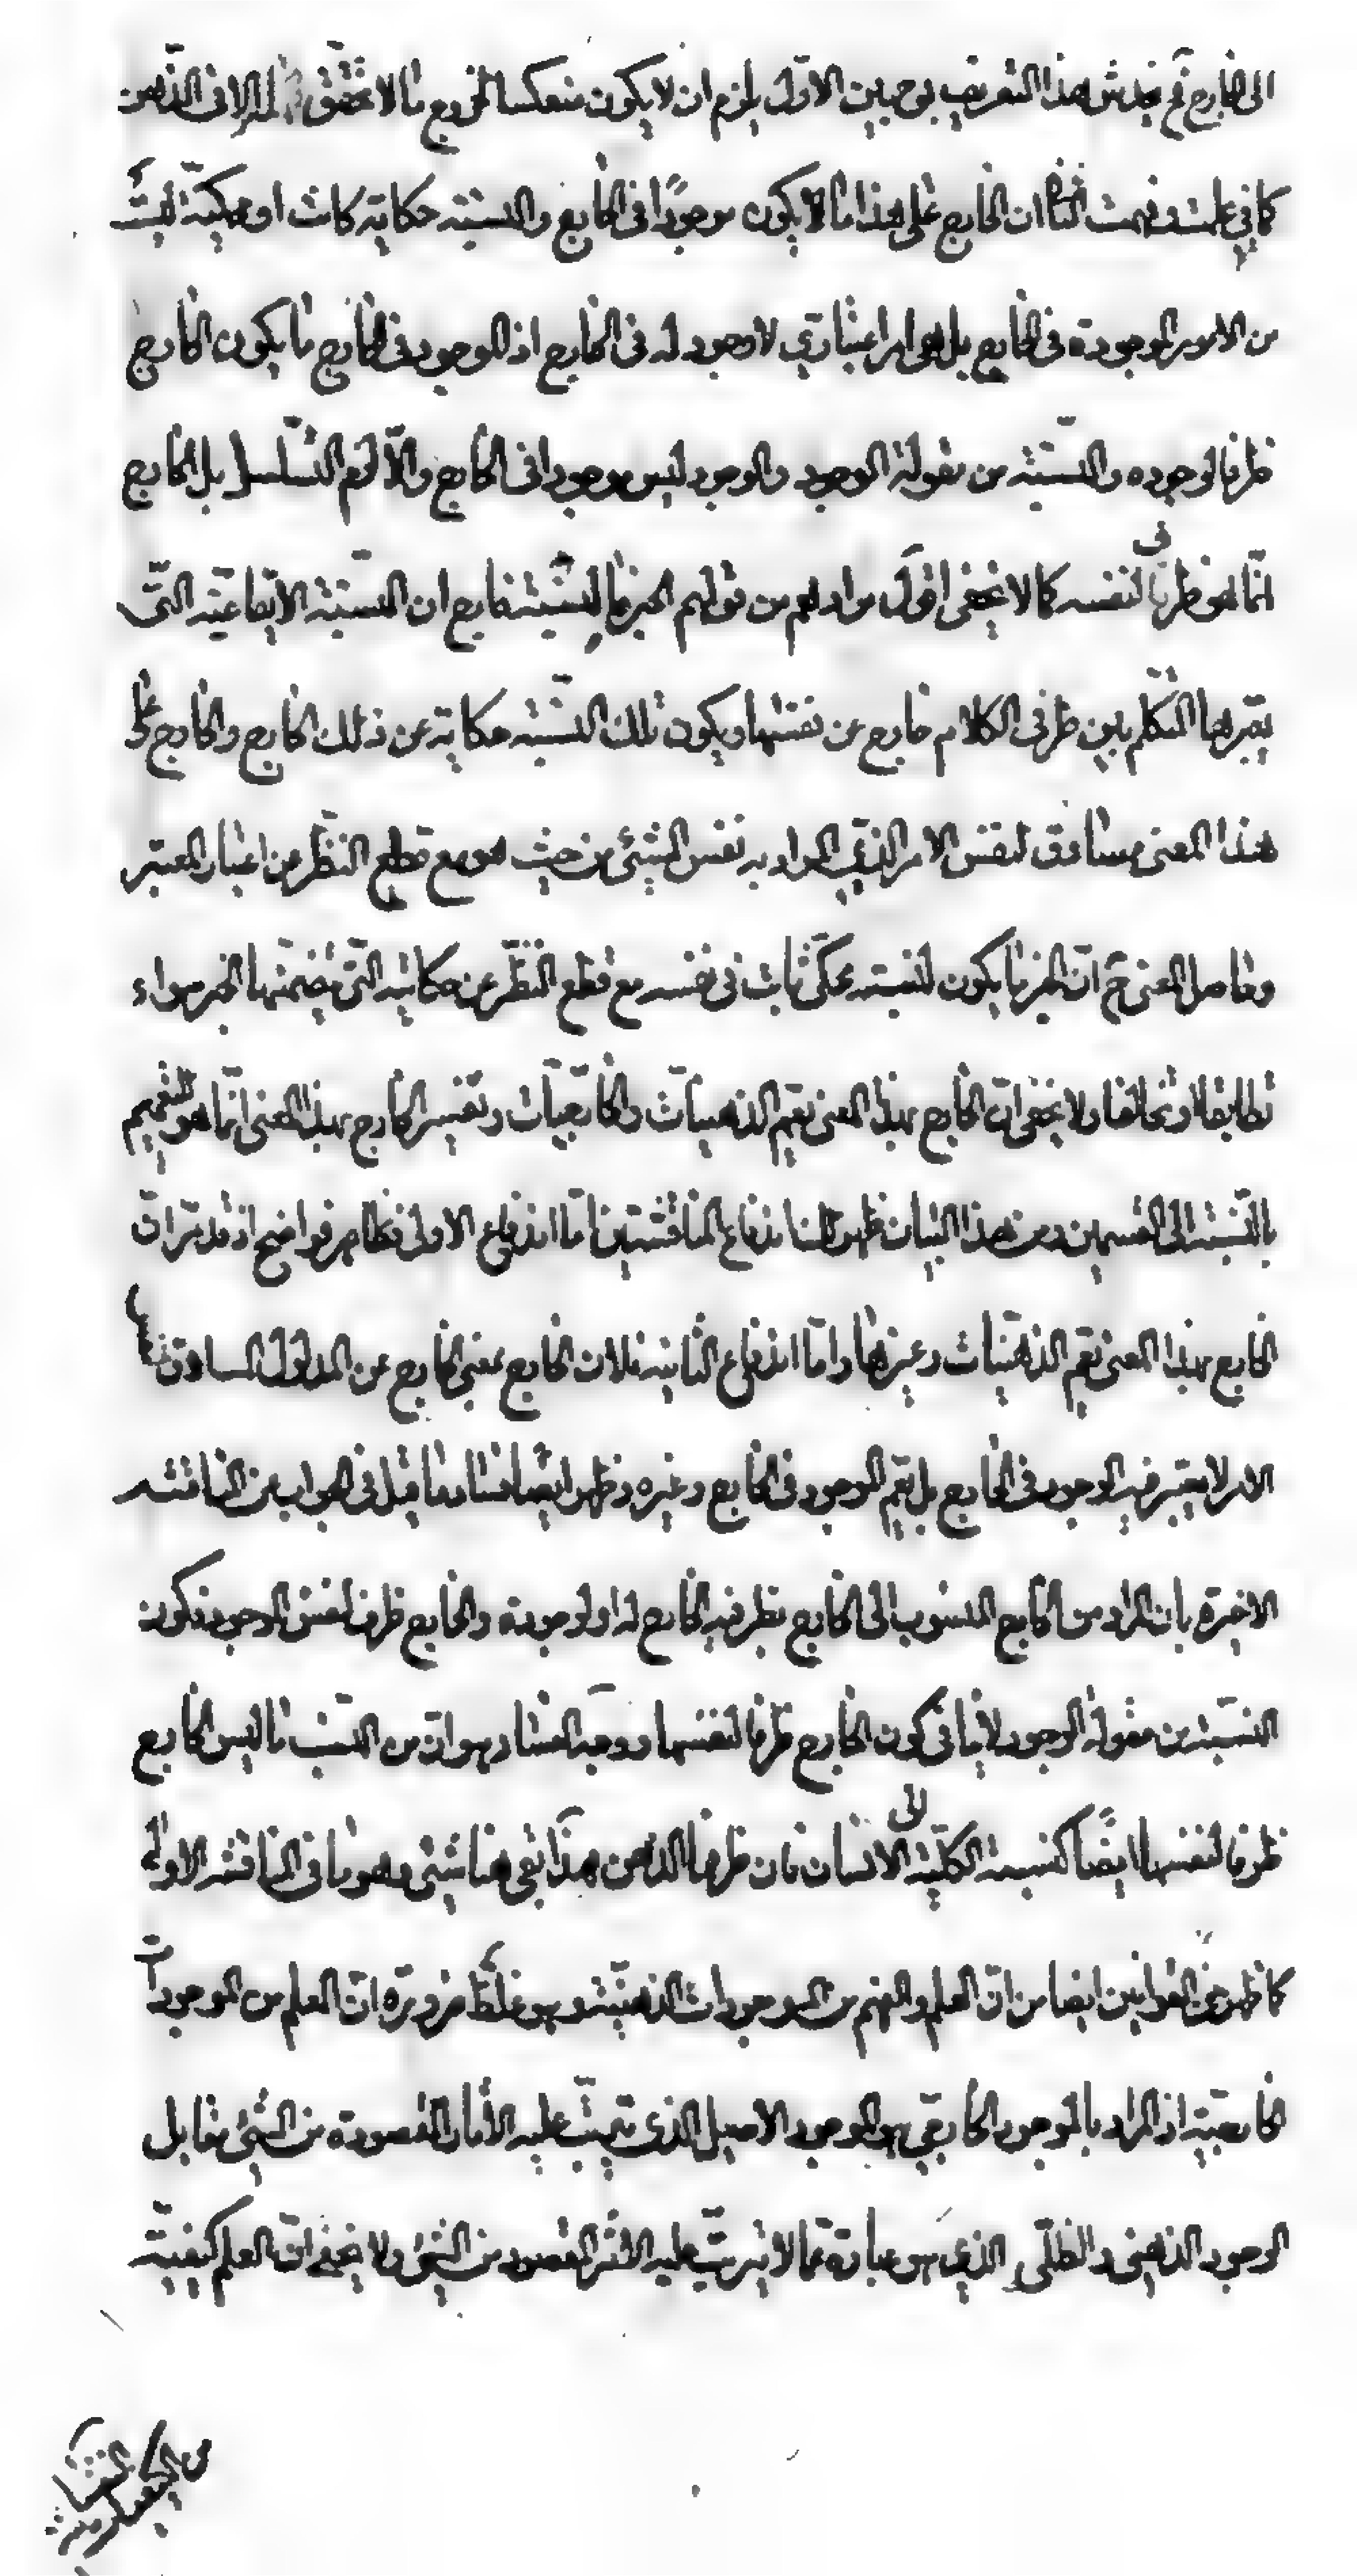 الى الخارج ثم يخدش هذا التعريف بوجهين الاوّل يلزم ان لا يكون منعكسا لخروج ما لا تحقّق له الا فى الذّهن
كما في علمت وفهمت الثانى ان الخارج على هذا ما لا يكون موجودًا فى الخارج والنسبة حكاية كانت او محكيّة ليست
من الامور الموجودة فى الخارج بل هى امر اعتباري لا وجود له فى الخارج اذ الموجود فى الخارج ما يكون الخارج
ظرفا لوجوده والنسبة من مقولة الوجود والوجود ليس موجودا فى الخارج والّا لزم التسلسل بل الخارج
انّما هو ظرف لنفسه كما لا يخفى اقول مرادهم من قولهم الخبر ما لنسبته خارج ان النسبة الايقاعيّة التى
يعتبرها المتكلم بين طرفى الكلام خارج عن نفسها ويكون تلك النسبة حكاية عن ذلك الخارج والخارج على
هذا المعنى مساوق لنفس الامر الذي المراد به نفس الشيئ من حيث هو مع قطع النظر عن اعتبار المعتبر
وحاصل المعنى ح انّ الخبر ما يكون لنسبته محكى ثابت فى نفسه مع قطع النظر عن حكايته التى يتضمنها الخبر سواء
تطابقا او تخالفا ولا يخفى انّ الخارج بهذا المعنى يعمّ الذهنيات والخارجيات وتفسير الخارج بهذا المعنى انّما هو للتعميم
بالنسبة الى القسمين ومن هذا البيان ظهر لك اندفاع المناقشتين امّا اندفاع الاولى فظاهر فواضح اذ قد مرّ ان
الخارج بهذا المعنى يعم الذهنيات وغيرها وامّا اندفاع الثانية فلان الخارج بمعنى الخارج عن المدلول المساوق لنفس
الامر لا يعتبر فيه الوجود فى الخارج بل يعم الموجود فى الخارج وغيره وظهر ايضا فساد ما قيل فى الجواب عن المناقشة
الاخيرة بان المراد من الخارج المنسوب الى الخارج بظرفية الخارج له او لوجوده والخارج ظرف لنفس الوجود فكون
النسبة من مقولة الوجود لا ينافى كون الخارج ظرفا لنفسها ووجه الفساد هو انّ من النسب ما ليس الخارج
ظرفا لنفسها ايضًا كنسبة الكلّية الى الانسان فان ظرفها الذهن هذا بقى هنا شيئ وهو ما فى المناقشة الاولى
كما ظهر من القوانين ايضا من انّ العلم والفهم من الموجودات الذهنيّة وهو غلط ضرورة انّ العلم من الموجودات
الخارجيّة اذ المراد بالموجود الخارجى هو الوجود الاصيل الذى يترتب عليه الآثار المقصودة من الشيئ مقابل
الوجود الذهنى والظلّى الذي هو عبارة عما لا يترتب عليه الاثر المقصود من الشيئ ولا يخفى انّ العلم كيفيّة